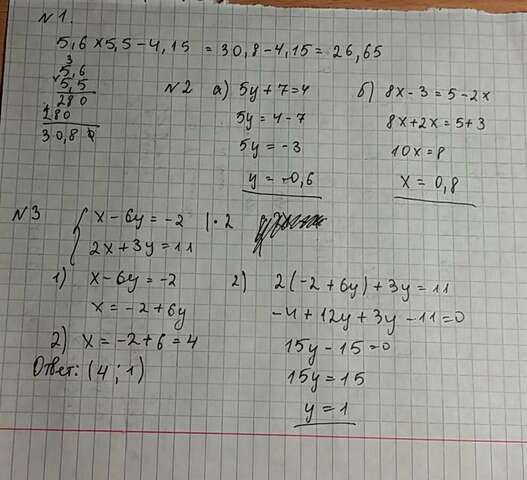 №1.
5,6 × 5,5 - 4,15 = 30,8 - 4,15 = 26,65
3
× 5,6
5,5
280
+ 280
30,80
№2 а) 5y + 7 = 4
5y = 4 - 7
5y = -3
y = -0,6
б) 8x - 3 = 5 - 2x
8x + 2x = 5 + 3
10x = 8
x = 0,8
№3
{ x - 6y = -2 | · 2
2x + 3y = 11
1) x - 6y = -2
x = -2 + 6y
2) 2(-2 + 6y) + 3y = 11
-4 + 12y + 3y - 11 = 0
15y - 15 = 0
15y = 15
y = 1
2) x = -2 + 6 = 4
Ответ: (4 ; 1)